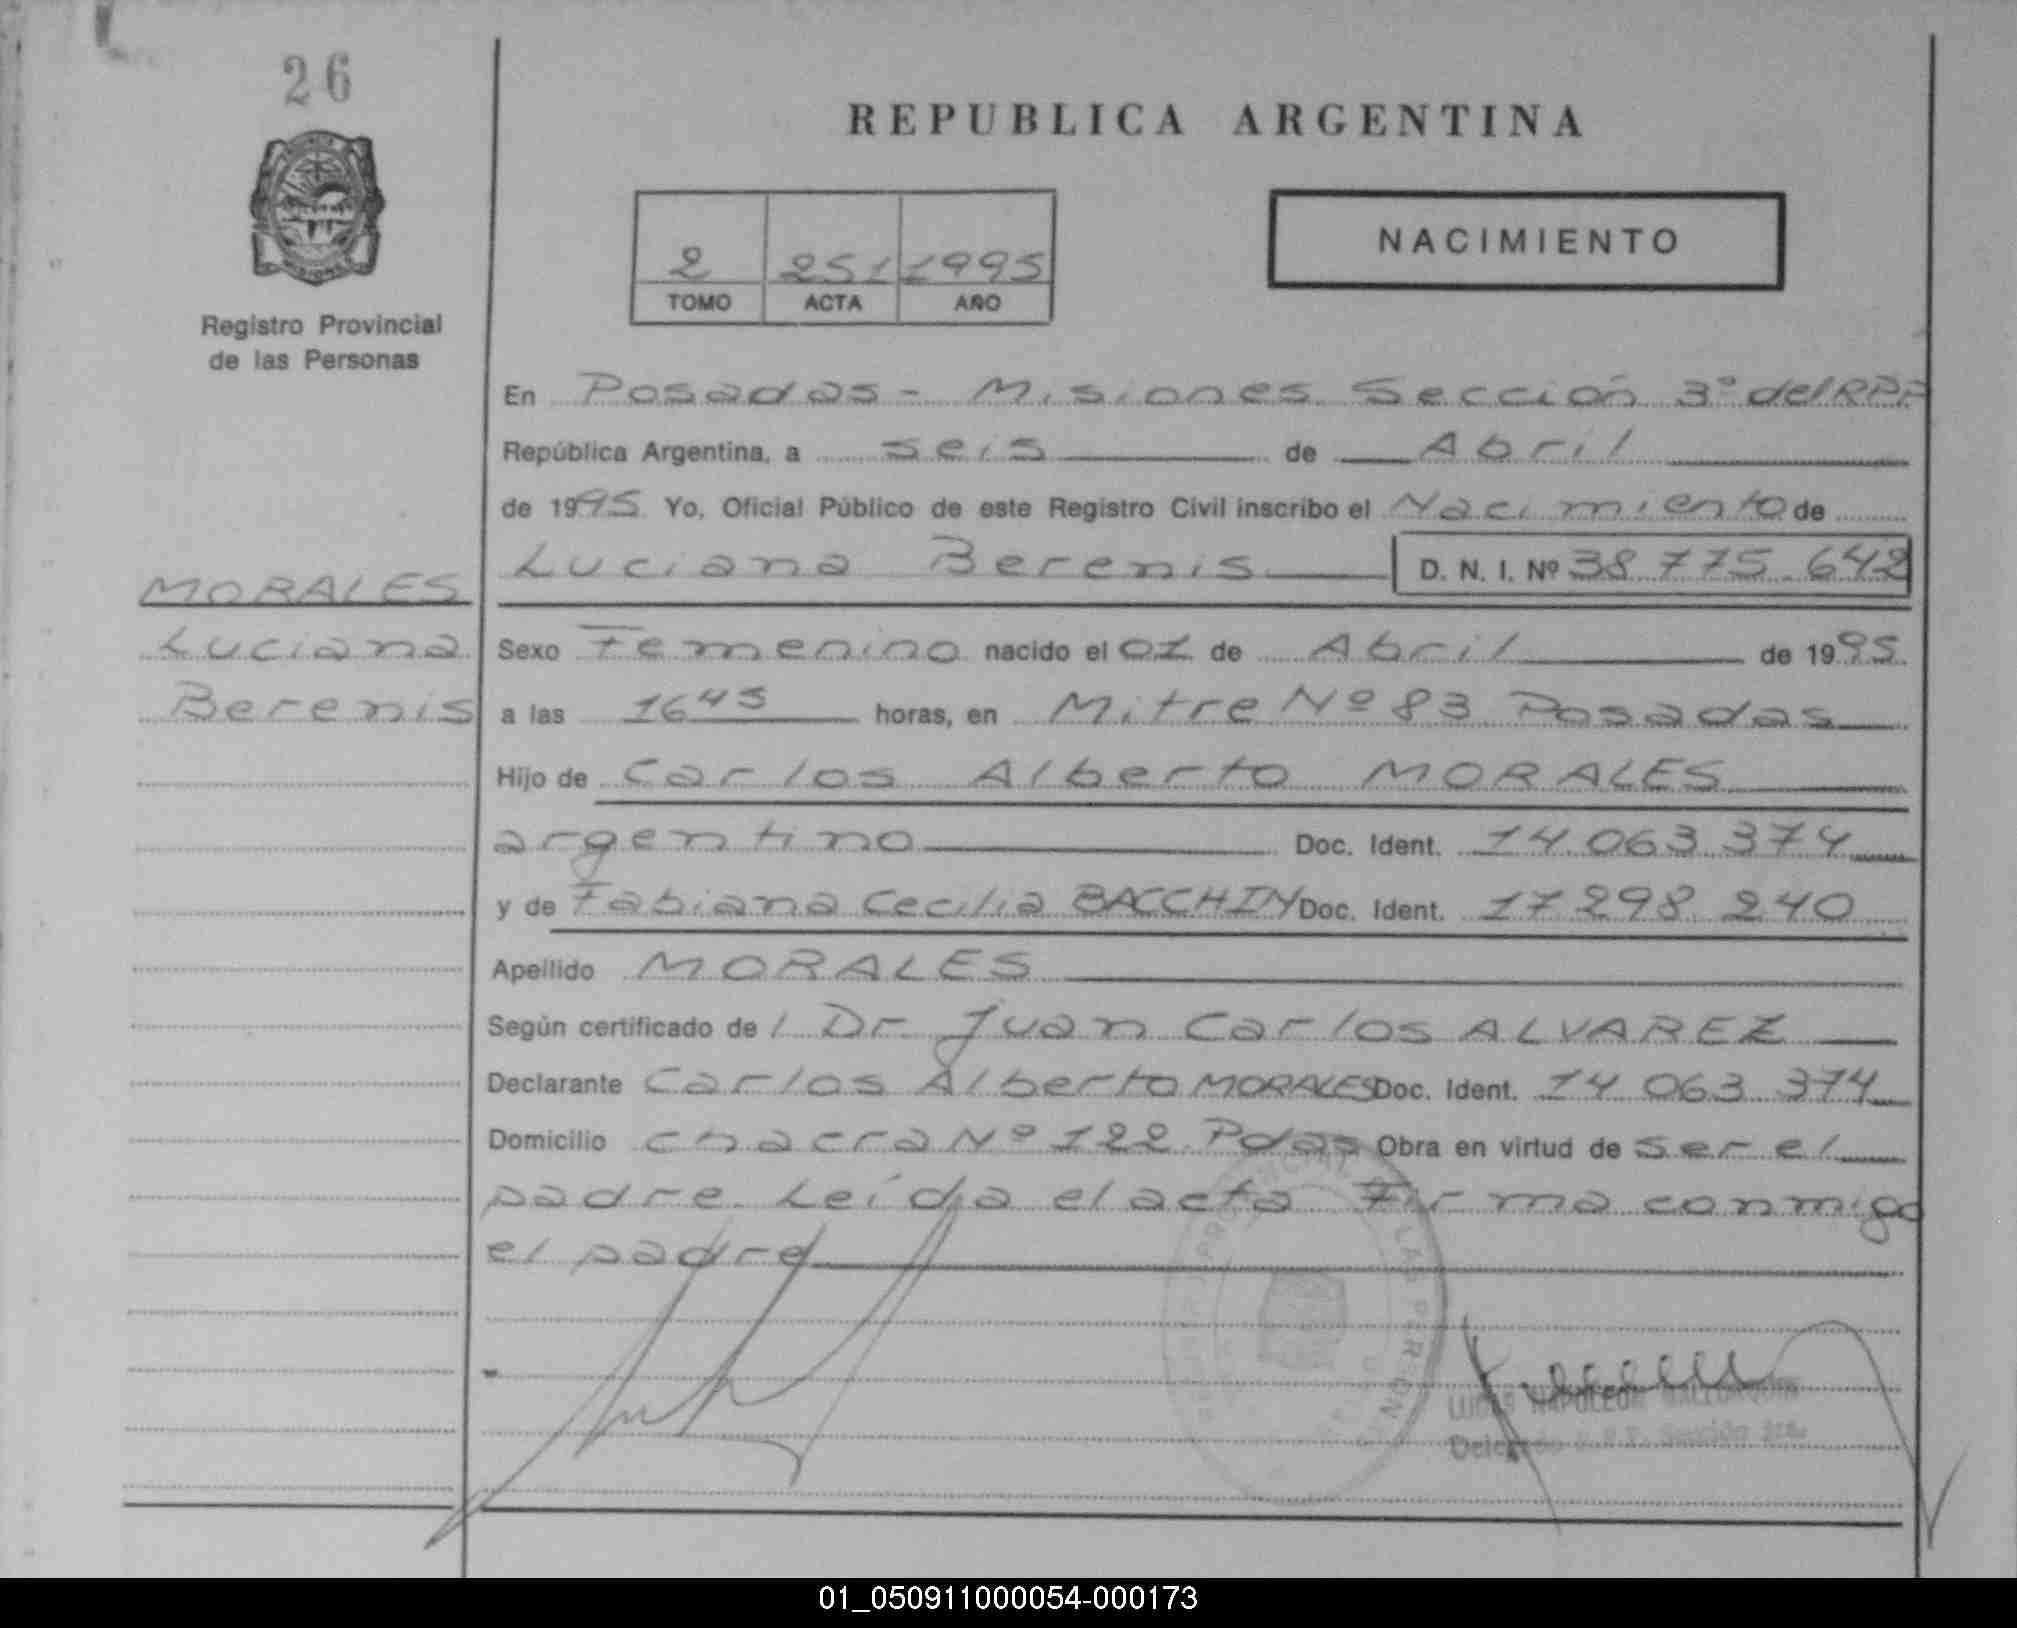 26
REPUBLICA ARGENTINA
NACIMIENTO
2 251 1995
TOMO ACTA AÑO
Registro Provincial
de las Personas
En Posadas - Misiones Sección 3º del RPP
República Argentina, a seis de Abril
de 1995 Yo, Oficial Público de este Registro Civil inscribo el Nacimiento de
Luciana Berenis D. N. I. Nº 38 775 642
MORALES
Luciana
Berenis
Sexo Femenino nacido el 01 de Abril de 1995
a las 16 45 horas, en Mitre Nº 83 Posadas
Hijo de Carlos Alberto MORALES
argentino Doc. Ident. 14 063 374
y de Fabiana Cecilia BACCHIN Doc. Ident. 17 298 240
Apellido MORALES
Según certificado de l Dr. Juan Carlos ALVAREZ
Declarante Carlos Alberto MORALES Doc. Ident. 14 063 374
Domicilio chacra Nº 122 Pdas Obra en virtud de ser el
padre. Leída el acta Firma conmigo
el padre
NAPOLEON
01_050911000054-000173